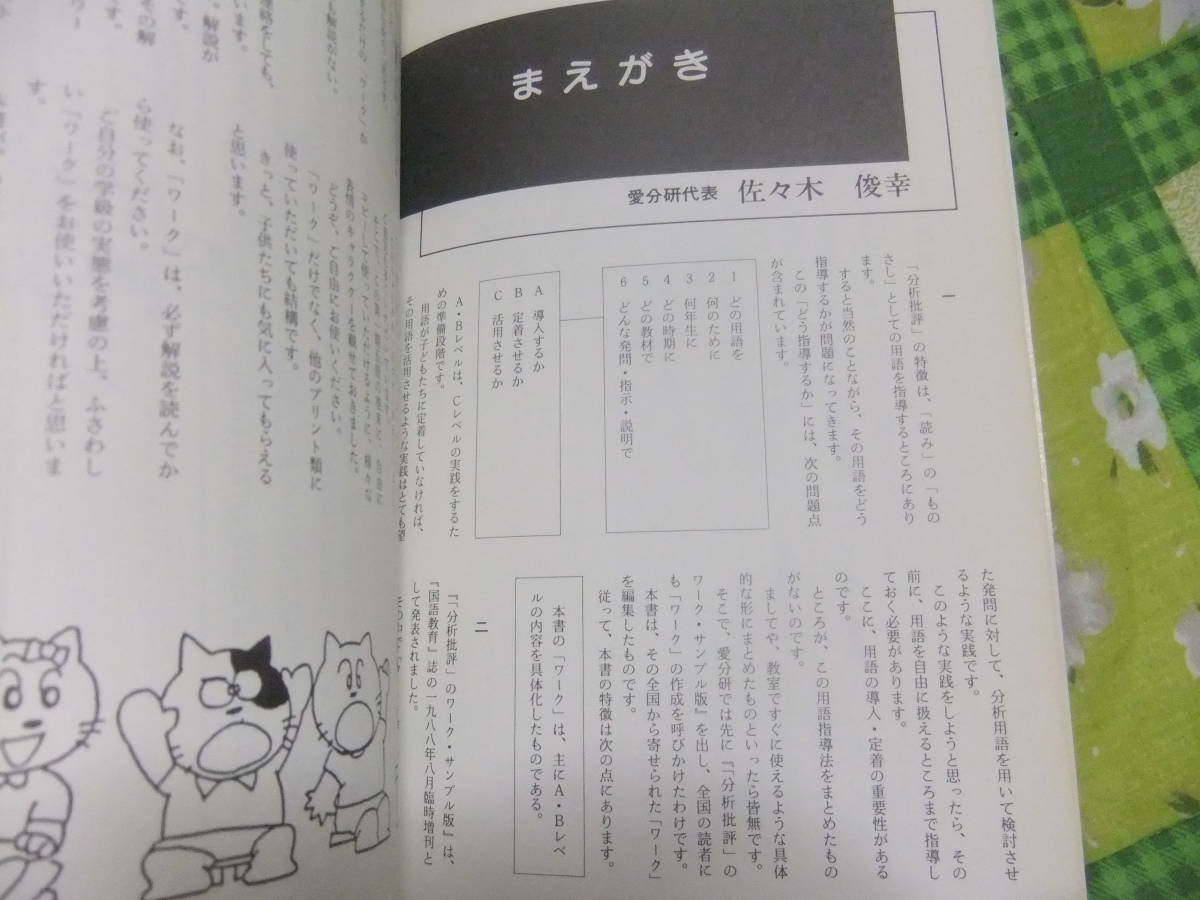 まえがき
愛分研代表　佐々木　俊幸
一
「分析批評」の特徴は、「読み」の「もの
さし」としての用語を指導するところにあり
ます。
すると当然のことながら、その用語をどう
指導するかが問題になってきます。
この「どう指導するか」には、次の問題点
が含まれています。
1　どの用語を
2　何のために
3　何年生に
4　どの時期に
5　どの教材で
6　どんな発問・指示・説明で
A　導入するか
B　定着させるか
C　活用させるか
A・Bレベルは、Cレベルの実践をするた
めの準備段階です。
用語が子どもたちに定着していなければ、
その用語を活用させるような実践はとても望
た発問に対して、分析用語を用いて検討させ
るような実践です。
このような実践をしようと思ったら、その
前に、用語を自由に扱えるところまで指導し
ておく必要があります。
ここに、用語の導入・定着の重要性がある
のです。
ところが、この用語指導法をまとめたもの
がないのです。
ましてや、教室ですぐに使えるような具体
的な形にまとめたものといったら皆無です。
そこで、愛分研では先に『「分析批評」の
ワーク・サンプル版』を出し、全国の読者に
も「ワーク」の作成を呼びかけたわけです。
本書は、その全国から寄せられた「ワーク」
を編集したものです。
従って、本書の特徴は次の点にあります。
本書の「ワーク」は、主にA・Bレベ
ルの内容を具体化したものである。
二
『「分析批評」のワーク・サンプル版』は、
『国語教育』誌の一九八八年八月臨時増刊と
して発表されました。
も解説がない。
連絡をしても、
います。
、解説が
です。
その解
です。
コピーして使っていただけるように、様々な
表情のキャラクターを載せておきました。
どうぞ、ご自由にお使いください。
「ワーク」だけでなく、他のプリント類に
使っていただいても結構です。
きっと、子供たちにも気に入ってもらえる
と思います。
なお、「ワーク」は、必ず解説を読んでか
ら使ってください。
ご自分の学級の実態を考慮の上、ふさわし
い「ワーク」をお使いいただければと思いま
す。